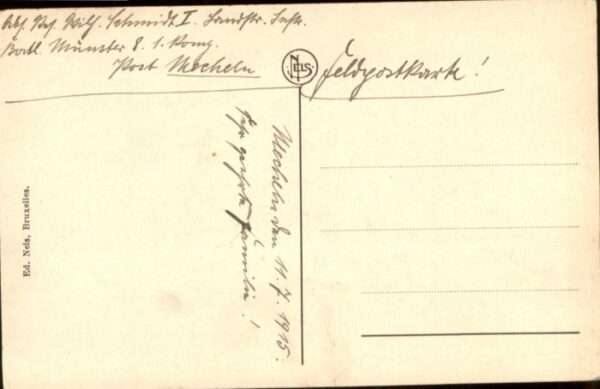 Abs. Rf. Wilh. Schmidt I. Landstr. Inftr.
Batl. Münster 8. 1. Komp.
Post Mecheln
NELS
Feldpostkarte!
Mecheln den 11.7.1915.
Sehr geehrte Familie!
Ed. Nels, Bruxelles.